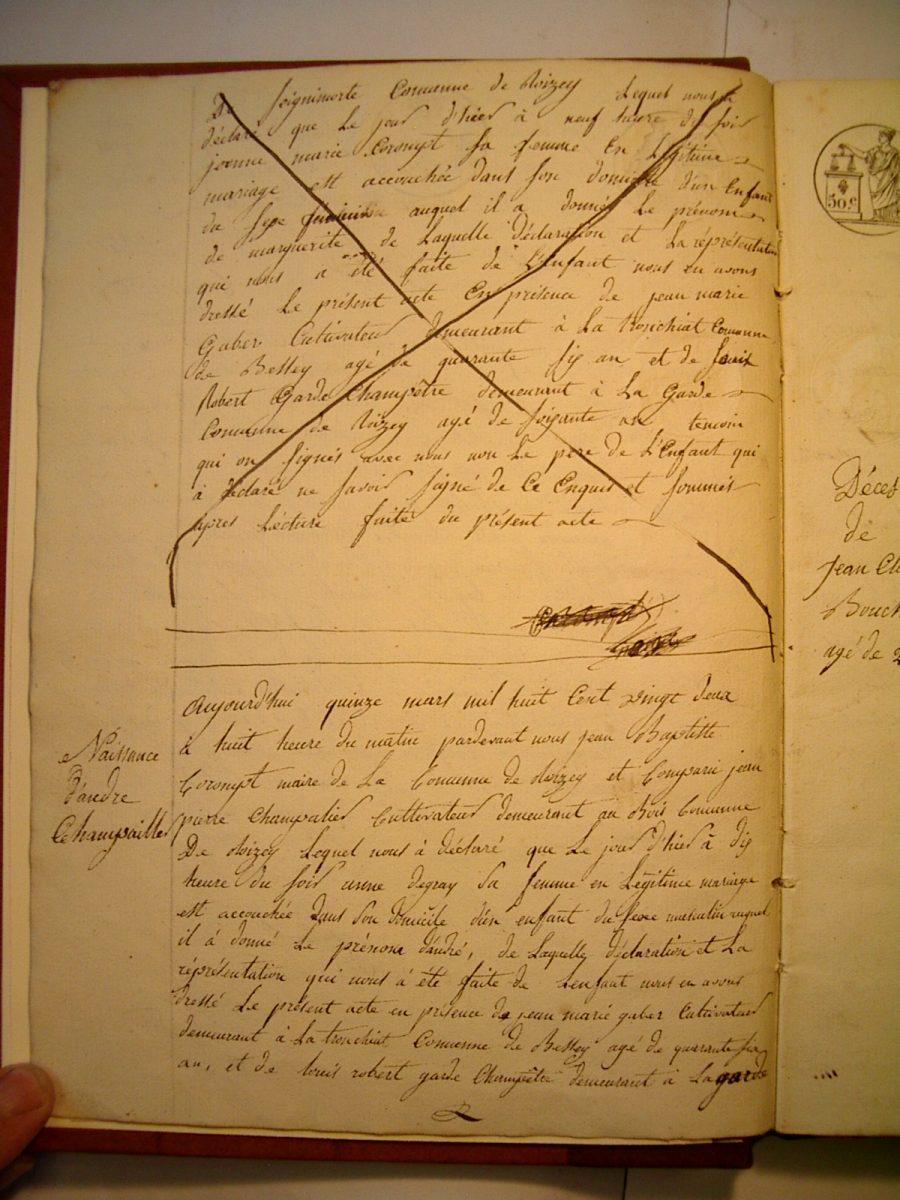 De soignimorte Comunne de Roizey Lequel nous a
déclaré que Le jour d'hier à neuf heure du soir
jeanne marie Corompt sa femme En Légitime
mariage est accouchée dans son domicile d'un Enfant
du sexe féminin auquel il a donné Le prénom
de marguerite de Laquelle déclaration et La réprésentation
qui nous a été faite de L'enfant nous en avons
dressé Le présent acte En présence de jean marie
Gaber Cultivateur demeurant à La tronchiat Comunne
de Bessey agé de quarante six an et de Louis
Robert Garde Champêtre demeurant à La Garde
Comunne de Roizey agé de soixante an temoin
qui on signés avec nous non Le pere de L'Enfant qui
à déclaré ne savoir signé de Ce Enquis et sommés
apres Lécture faite du présent acte
Aujourd'hui quinze mars mil huit Cent vingt deux
à huit heure du matin pardevant nous jean Baptiste
Corompt maire de La Comunne de Roizey et Comparu jean
pierre Champalier Cultivateur demeurant au Bois Comunne
De Roizey Lequel nous à déclaré que Le jour d'hier à dix
heure du soir anne degray Sa femme en Légitime mariage
est accouchée Dans Son domicile d'un enfant du sexe masculin auquel
il à donné Le prénom d'andré, de Laquelle déclaration et La
réprésentation qui nous à été faite de L'enfant nous en avons
dressé Le présent acte en présence de jean marie gaber Cultivateur
demeurant à La tronchiat Comunne de Bessey agé de quarante six
an, et de Louis robert garde Champêtre demeurant à La garde
Naissance
d'andre
Champailler
50 c
Déces
de
Jean
agé de